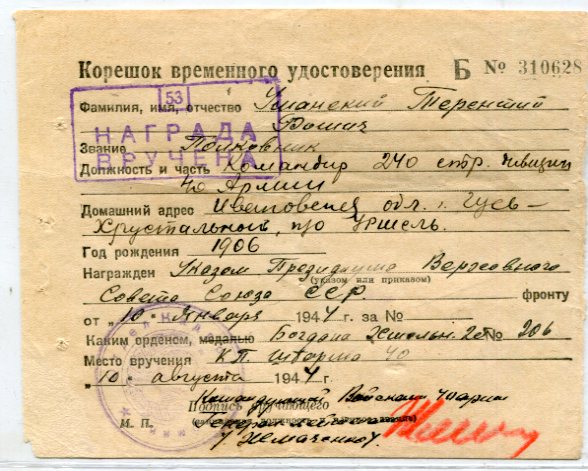 Корешок временного удостоверения Б № 310628
53
НАГРАДА
ВРУЧЕНА
Фамилия, имя, отчество Уманский Терентий
Фомич
Звание Полковник
Должность и часть Командир 240 стр. дивизии
40 Армии
Домашний адрес Ивановская обл. г. Гусь-
Хрустальный, п/о Уршель.
Год рождения 1906
Награжден Указом Президиума Верховного
(указом или приказом)
Совета Союза ССР фронту
от „10" января 1944 г. за №
Каким орденом, медалью Богдана Хмельн. 2ст № 206
Место вручения К.П. штарма 40
„10" августа 1944 г.
Командующий Войсками 40 армии
Подпись вручающего
М. П.
/Жмаченко/